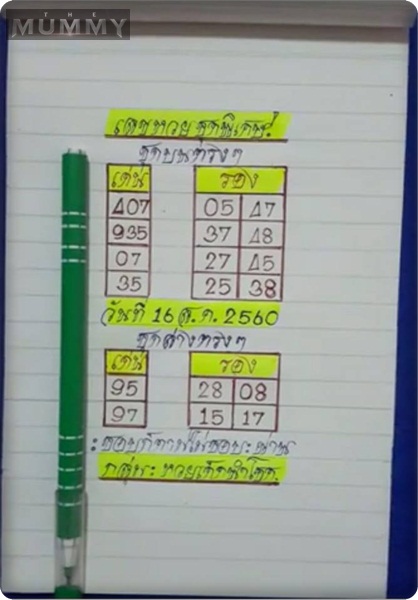 THE
MUMMY
เลขหวย ชุดพิเศษ!
ชุดบนตรงๆ
เด่น รอง
407 05 47
935 37 48
07 27 45
35 25 38
วันที่ 16 ต.ค. 2560
ชุดล่างตรงๆ
เด่น รอง
95 28 08
97 15 17
: ชอบก็ตามไม่ชอบ: ผ่าน
กลุ่ม: หวยเด็กนำโชค.